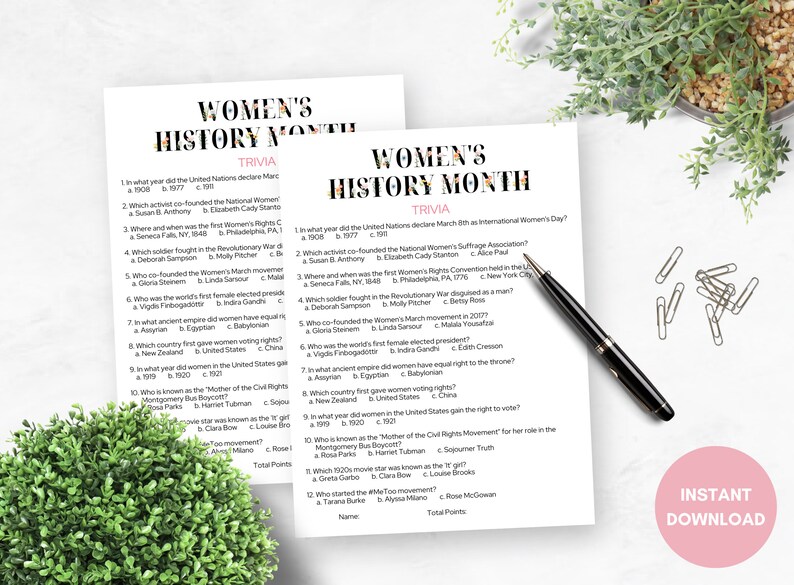 WOMEN'S
HISTORY MONTH
TRIVIA
1. In what year did the United Nations declare March
a. 1908 b. 1977 c. 1911
2. Which activist co-founded the National Women'
a. Susan B. Anthony b. Elizabeth Cady Stanton
3. Where and when was the first Women's Rights C
a. Seneca Falls, NY, 1848 b. Philadelphia, PA, 1
4. Which soldier fought in the Revolutionary War di
a. Deborah Sampson b. Molly Pitcher c. Be
5. Who co-founded the Women's March movemen
a. Gloria Steinem b. Linda Sarsour c. Malal
6. Who was the world's first female elected presiden
a. Vigdis Finbogadóttir b. Indira Gandhi c.
7. In what ancient empire did women have equal rig
a. Assyrian b. Egyptian c. Babylonian
8. Which country first gave women voting rights?
a. New Zealand b. United States c. China
9. In what year did women in the United States gain
a. 1919 b. 1920 c. 1921
10. Who is known as the "Mother of the Civil Rights
Montgomery Bus Boycott?
Rosa Parks b. Harriet Tubman c. Sojour
movie star was known as the 'It' girl?
b. Clara Bow c. Louise Broo
#MeToo movement?
b. Alyssa Milano c. Rose
Total Points:
WOMEN'S
HISTORY MONTH
TRIVIA
1. In what year did the United Nations declare March 8th as International Women's Day?
a. 1908 b. 1977 c. 1911
2. Which activist co-founded the National Women's Suffrage Association?
a. Susan B. Anthony b. Elizabeth Cady Stanton c. Alice Paul
3. Where and when was the first Women's Rights Convention held in the US
a. Seneca Falls, NY, 1848 b. Philadelphia, PA, 1776 c. New York City,
4. Which soldier fought in the Revolutionary War disguised as a man?
a. Deborah Sampson b. Molly Pitcher c. Betsy Ross
5. Who co-founded the Women's March movement in 2017?
a. Gloria Steinem b. Linda Sarsour c. Malala Yousafzai
6. Who was the world's first female elected president?
a. Vigdis Finbogadóttir b. Indira Gandhi c. Édith Cresson
7. In what ancient empire did women have equal right to the throne?
a. Assyrian b. Egyptian c. Babylonian
8. Which country first gave women voting rights?
a. New Zealand b. United States c. China
9. In what year did women in the United States gain the right to vote?
a. 1919 b. 1920 c. 1921
10. Who is known as the "Mother of the Civil Rights Movement" for her role in the
Montgomery Bus Boycott?
a. Rosa Parks b. Harriet Tubman c. Sojourner Truth
11. Which 1920s movie star was known as the 'It' girl?
a. Greta Garbo b. Clara Bow c. Louise Brooks
12. Who started the #MeToo movement?
a. Tarana Burke b. Alyssa Milano c. Rose McGowan
Name: Total Points:
INSTANT
DOWNLOAD